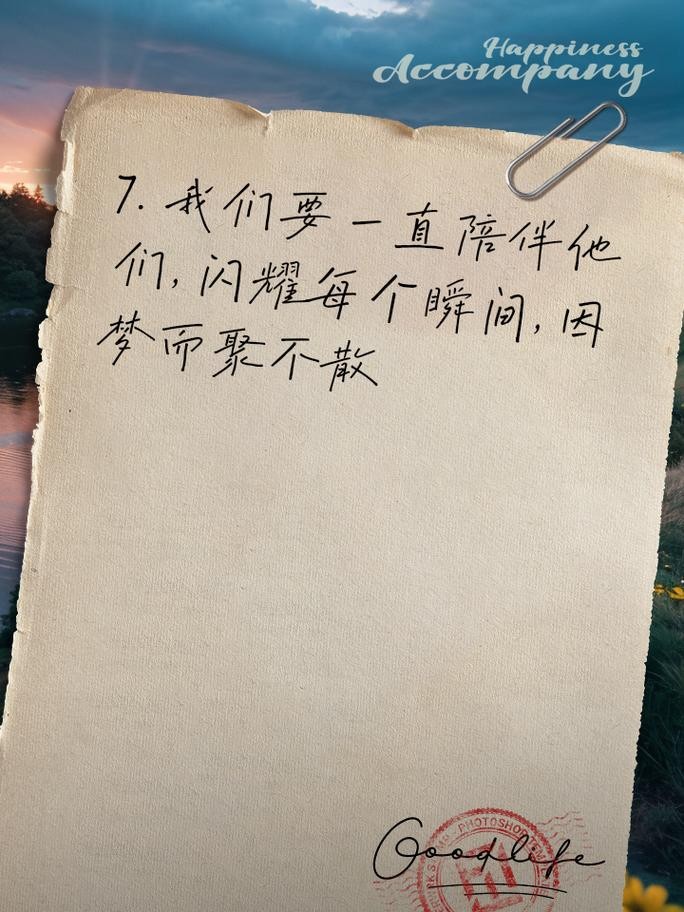 Happiness
Accompany
7. 我们要一直陪伴他
们,闪耀每个瞬间,因
梦而聚不散
PHOTOSHOP
Goodlife